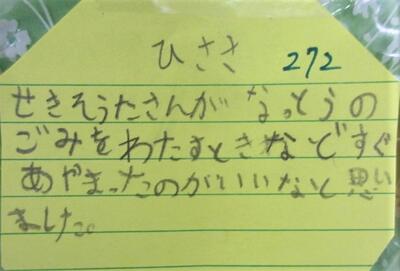 ひささ 272
せきそうたさんが なっとうの
ごみをわたすときなどすぐ
あやまったのがいいなと思い
ました。